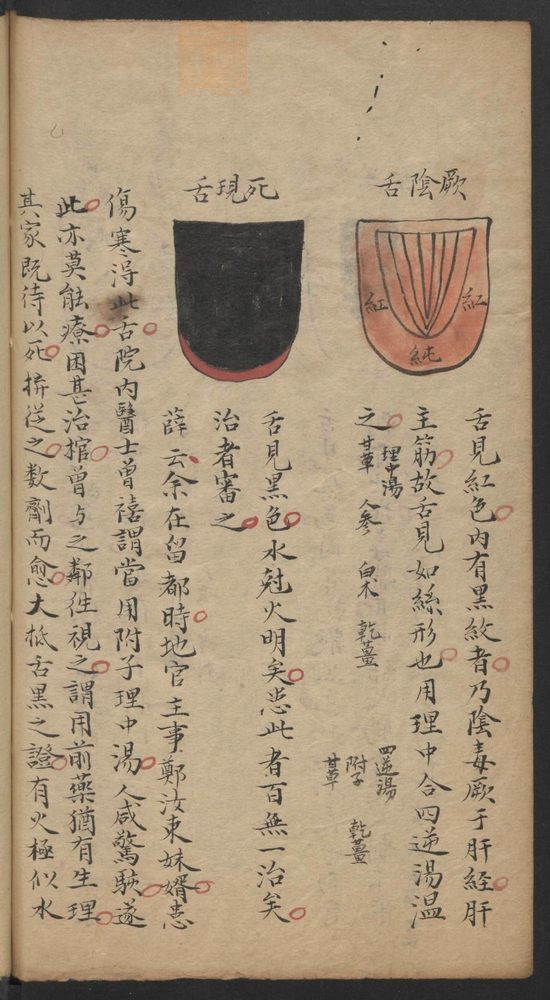 厥陰舌
紅
紅
純
舌見紅色內有黑紋者乃陰毒厥于肝經肝
主筋故舌見如絲形也用理中合四逆湯温
之
理中湯
甘草 人參 白朮 乾薑
四逆湯
附子 乾薑
甘草
死現舌
舌見黑色水尅火明矣患此者百無一治矣
治者審之
薛云余在留都時地官主事鄭汝東妹婿患
傷寒得此舌院內醫士曾禧謂當用附子理中湯人咸驚駭遂
此亦莫能療困甚治棺曾与之鄰徃視之謂用前藥猶有生理
其家既待以死拚從之数劑而愈大抵舌黑之證有火極似水